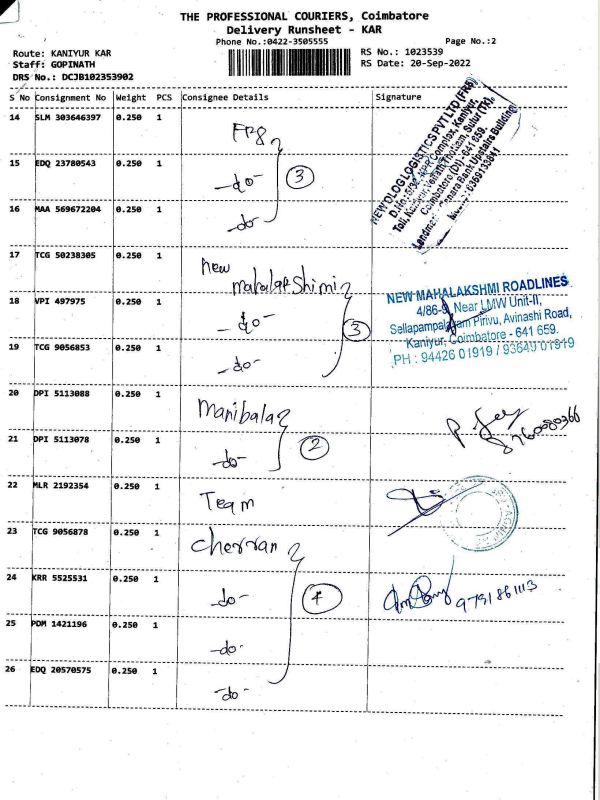 THE PROFESSIONAL COURIERS, Coimbatore
Delivery Runsheet - KAR
Phone No.:0422-3505555
Page No.:2
Route: KANIYUR KAR
RS No.: 1023539
Staff: GOPINATH
RS Date: 20-Sep-2022
DRS No.: DCJB102353902
S No Consignment No Weight PCS Consignee Details Signature
14 SLM 303646397 0.250 1
15 EDQ 23780543 0.250 1 -do- 3
16 MAA 569672204 0.250 1 -do-
NEW OLOG LOGISTICS PVT LTD (FR8)
Coimbatore (Dt) - 641 659.
17 TCG 50238305 0.250 1 new
mahalakshimi
18 VPI 497975 0.250 1 -do- 3
19 TCG 9056853 0.250 1 -do-
NEW MAHALAKSHMI ROADLINES
4/86-9, Near LMW Unit-II,
Sellapampalayam Pirivu, Avinashi Road,
Kaniyur, Coimbatore - 641 659.
PH : 94426 01919 / 93649 01919
20 DPI 5113088 0.250 1 Manibala
21 DPI 5113078 0.250 1 -do- 2
22 MLR 2192354 0.250 1 Team
23 TCG 9056878 0.250 1 Cherran
24 KRR 5525531 0.250 1 -do- 4
25 PDM 1421196 0.250 1 -do-
26 EDQ 20570575 0.250 1 -do-